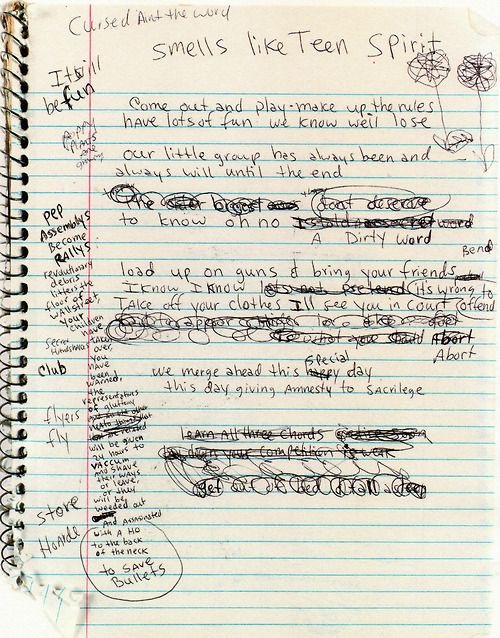 Cursed Aint the word
smells like Teen Spirit
It will
be fun
Come out and play - make up the rules
have lots of fun we know we'll lose
our little group has always been and
always will until the end
dont deserve
to know oh no word
A Dirty word
Bend
load up on guns & bring your friends
I know I know its wrong to
TAKE off your clothes I'll see you in court (offend
Abort
Abort
special
we merge ahead this happy day
this day giving Amnesty to Sacrilege
learn All three chords
down your competition
get out of bed
pep
Assemblys
Become
RALlys
revolutionary
debris
litters the
floor of
WAllstreet,
your
children
have
taken
over,
you
have
been
warned,
the
representatives
of gluttony
will be given
24 hours to
VACCUM
and shave
their ways
or leave,
or they
will be
weeded out
And Assasinated
with A HO
to the back
of the neck
to SAVE
Bullets
secret
Handshakes
Club
flyers
fly
store
Hoarde